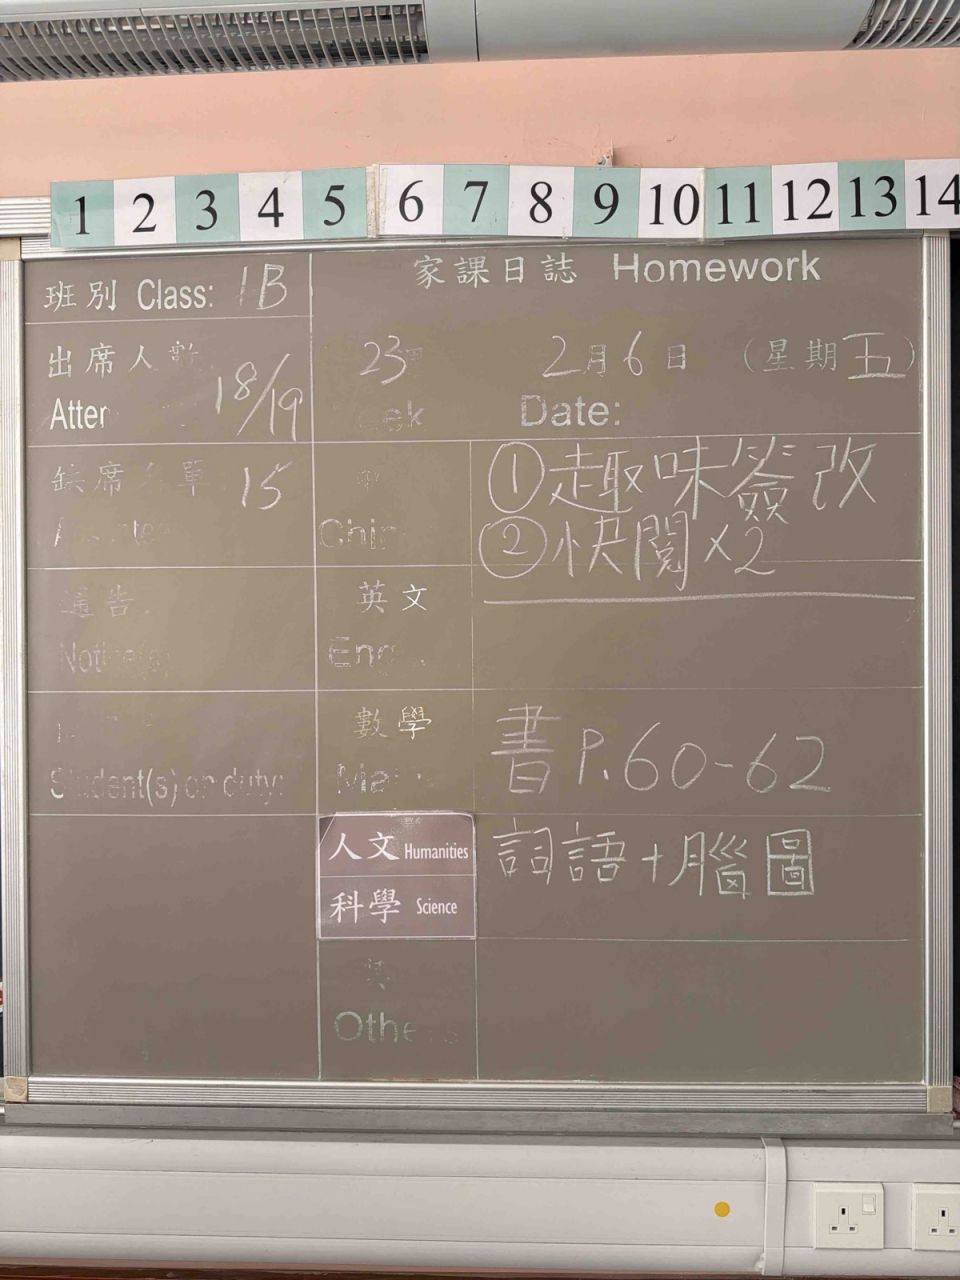 1 2 3 4 5 6 7 8 9 10 11 12 13 14
班別 Class: 1B
家課日誌 Homework
出席人數
Atter
18/19
23
ek
2月6日 (星期五)
Date:
缺席名單 15
Chin
①趣味簽改
②快閱×2
通告
Notice(s)
英文
Eng
Student(s) on duty:
數學
Ma
書 P.60-62
人文 Humanities
科學 Science
詞語+腦圖
其
Othe